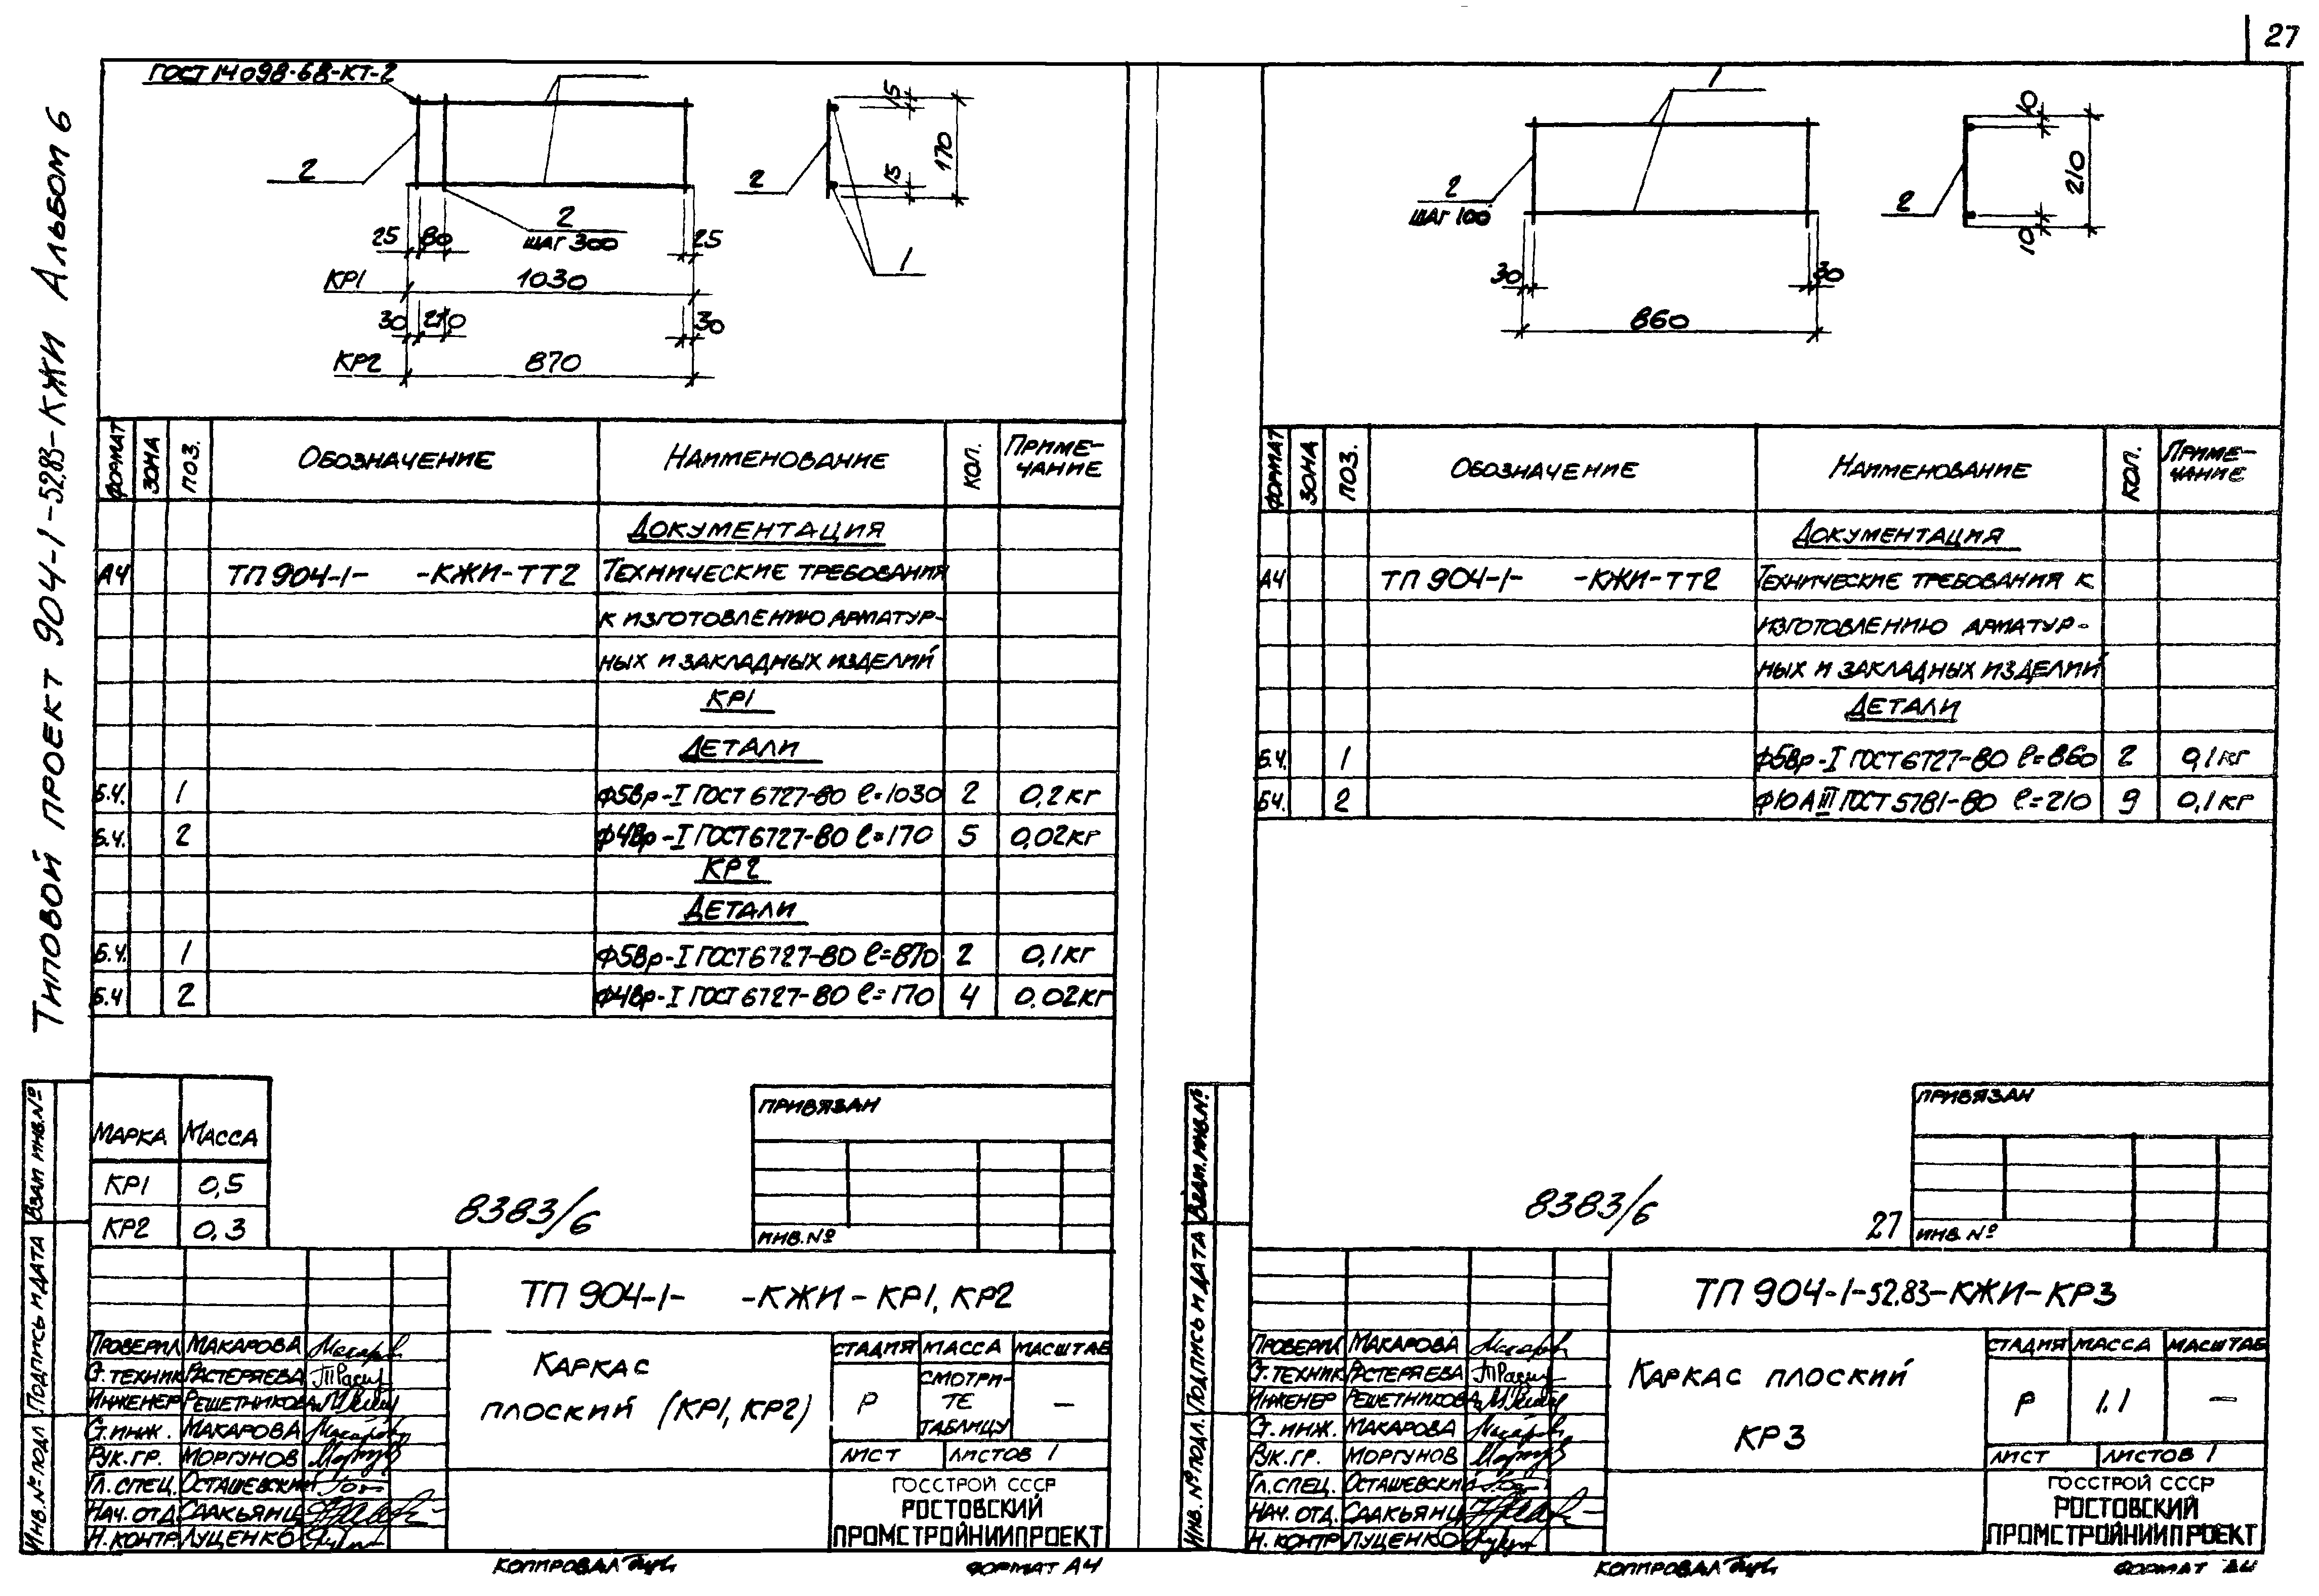 27
Типовой проект 904-1-52.83-КЖИ Альбом 6
ГОСТ 14098-68-КТ-2
2
2
шаг 300
25 80 25
КР1 1030
30 210 30
КР2 870
2
1
15
15
170
Формат Зона Поз. Обозначение Наименование Кол. Приме-
чание
Документация
А4 ТП 904-1- -КЖИ-ТТ2 Технические требования
к изготовлению арматур-
ных и закладных изделий
КР1
Детали
Б.Ч. 1 Ф5Вр-I ГОСТ 6727-80 ℓ=1030 2 0,2кг
Б.Ч. 2 Ф4Вр-I ГОСТ 6727-80 ℓ=170 5 0,02кг
КР2
Детали
Б.Ч. 1 Ф5Вр-I ГОСТ 6727-80 ℓ=870 2 0,1кг
Б.Ч 2 Ф4Вр-I ГОСТ 6727-80 ℓ=170 4 0,02кг
Марка Масса
КР1 0,5
КР2 0,3
8383/6
Привязан
Инв. №
ТП 904-1- -КЖИ-КР1, КР2
Каркас
плоский (КР1, КР2)
Стадия Масса Масштаб
Р Смотри-
те
таблицу —
Лист Листов 1
ГОССТРОЙ СССР
РОСТОВСКИЙ
ПРОМСТРОЙНИИПРОЕКТ
Проверил Макарова
Ст. техник Растеряева
Инженер Решетникова
Ст. инж. Макарова
Рук. гр. Моргунов
Гл. спец. Осташевский
Нач. отд. Саакьянц
Н. контр Луценко
Инв. № подл Подпись и дата Взам инв. №
Копировал
Формат А4
1
2
шаг 100
30 30
860
2
10
10
210
Формат Зона Поз. Обозначение Наименование Кол. Приме-
чание
Документация
А4 ТП 904-1- -КЖИ-ТТ2 Технические требования к
изготовлению арматур-
ных и закладных изделий
Детали
Б.Ч. 1 Ф5Вр-I ГОСТ 6727-80 ℓ=860 2 0,1кг
Б.Ч. 2 Ф10АIII ГОСТ 5781-80 ℓ=210 9 0,1кг
8383/6
27
Привязан
Инв. №
ТП 904-1-52.83-КЖИ-КР3
Каркас плоский
КР3
Стадия Масса Масштаб
Р 1.1 —
Лист Листов 1
ГОССТРОЙ СССР
РОСТОВСКИЙ
ПРОМСТРОЙНИИПРОЕКТ
Проверил Макарова
Ст. техник Растеряева
Инженер Решетникова
Ст. инж. Макарова
Рук. гр. Моргунов
Гл. спец. Осташевский
Нач. отд. Саакьянц
Н. контр Луценко
Инв. № подл. Подпись и дата Взам. инв. №
Копировал
Формат А4